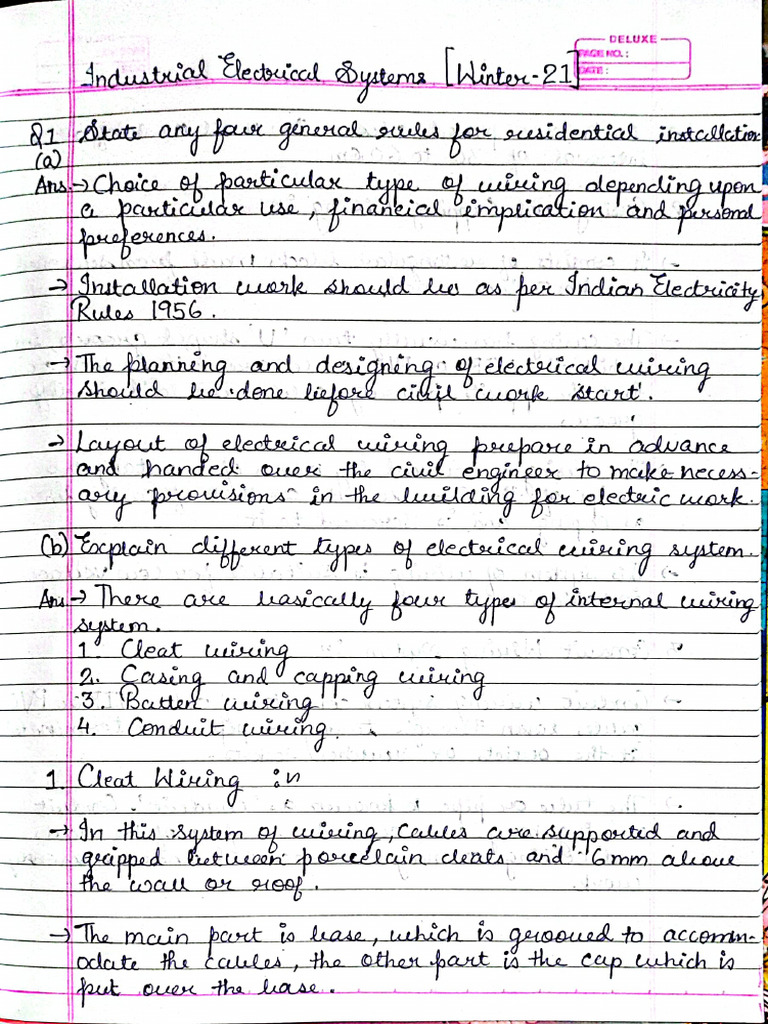 DELUXE
PAGE NO.:
DATE:
Industrial Electrical Systems [Winter-21]
Q1 State any four general rules for residential installation
(a)
Ans → Choice of particular type of wiring depending upon
a particular use, financial implication and personal
preferences.
→ Installation work should be as per Indian Electricity
Rules 1956.
→ The planning and designing of electrical wiring
should be done before civil work start.
→ Layout of electrical wiring prepare in advance
and handed over the civil engineer to make necess-
ary provisions in the building for electric work.
(b) Explain different types of electrical wiring system.
Ans → There are basically four types of internal wiring
system.
1. Cleat wiring
2. Casing and capping wiring
3. Batten wiring
4. Conduit wiring
1. Cleat Wiring :-
→ In this system of wiring, cables are supported and
gripped between porcelain cleats and 6mm above
the wall or roof.
→ The main part is base, which is grooved to accomm-
odate the cables, the other part is the cap which is
put over the base.